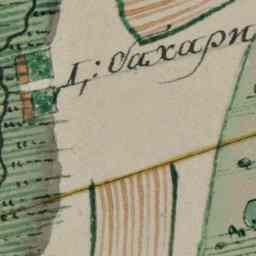 Д: Сахари